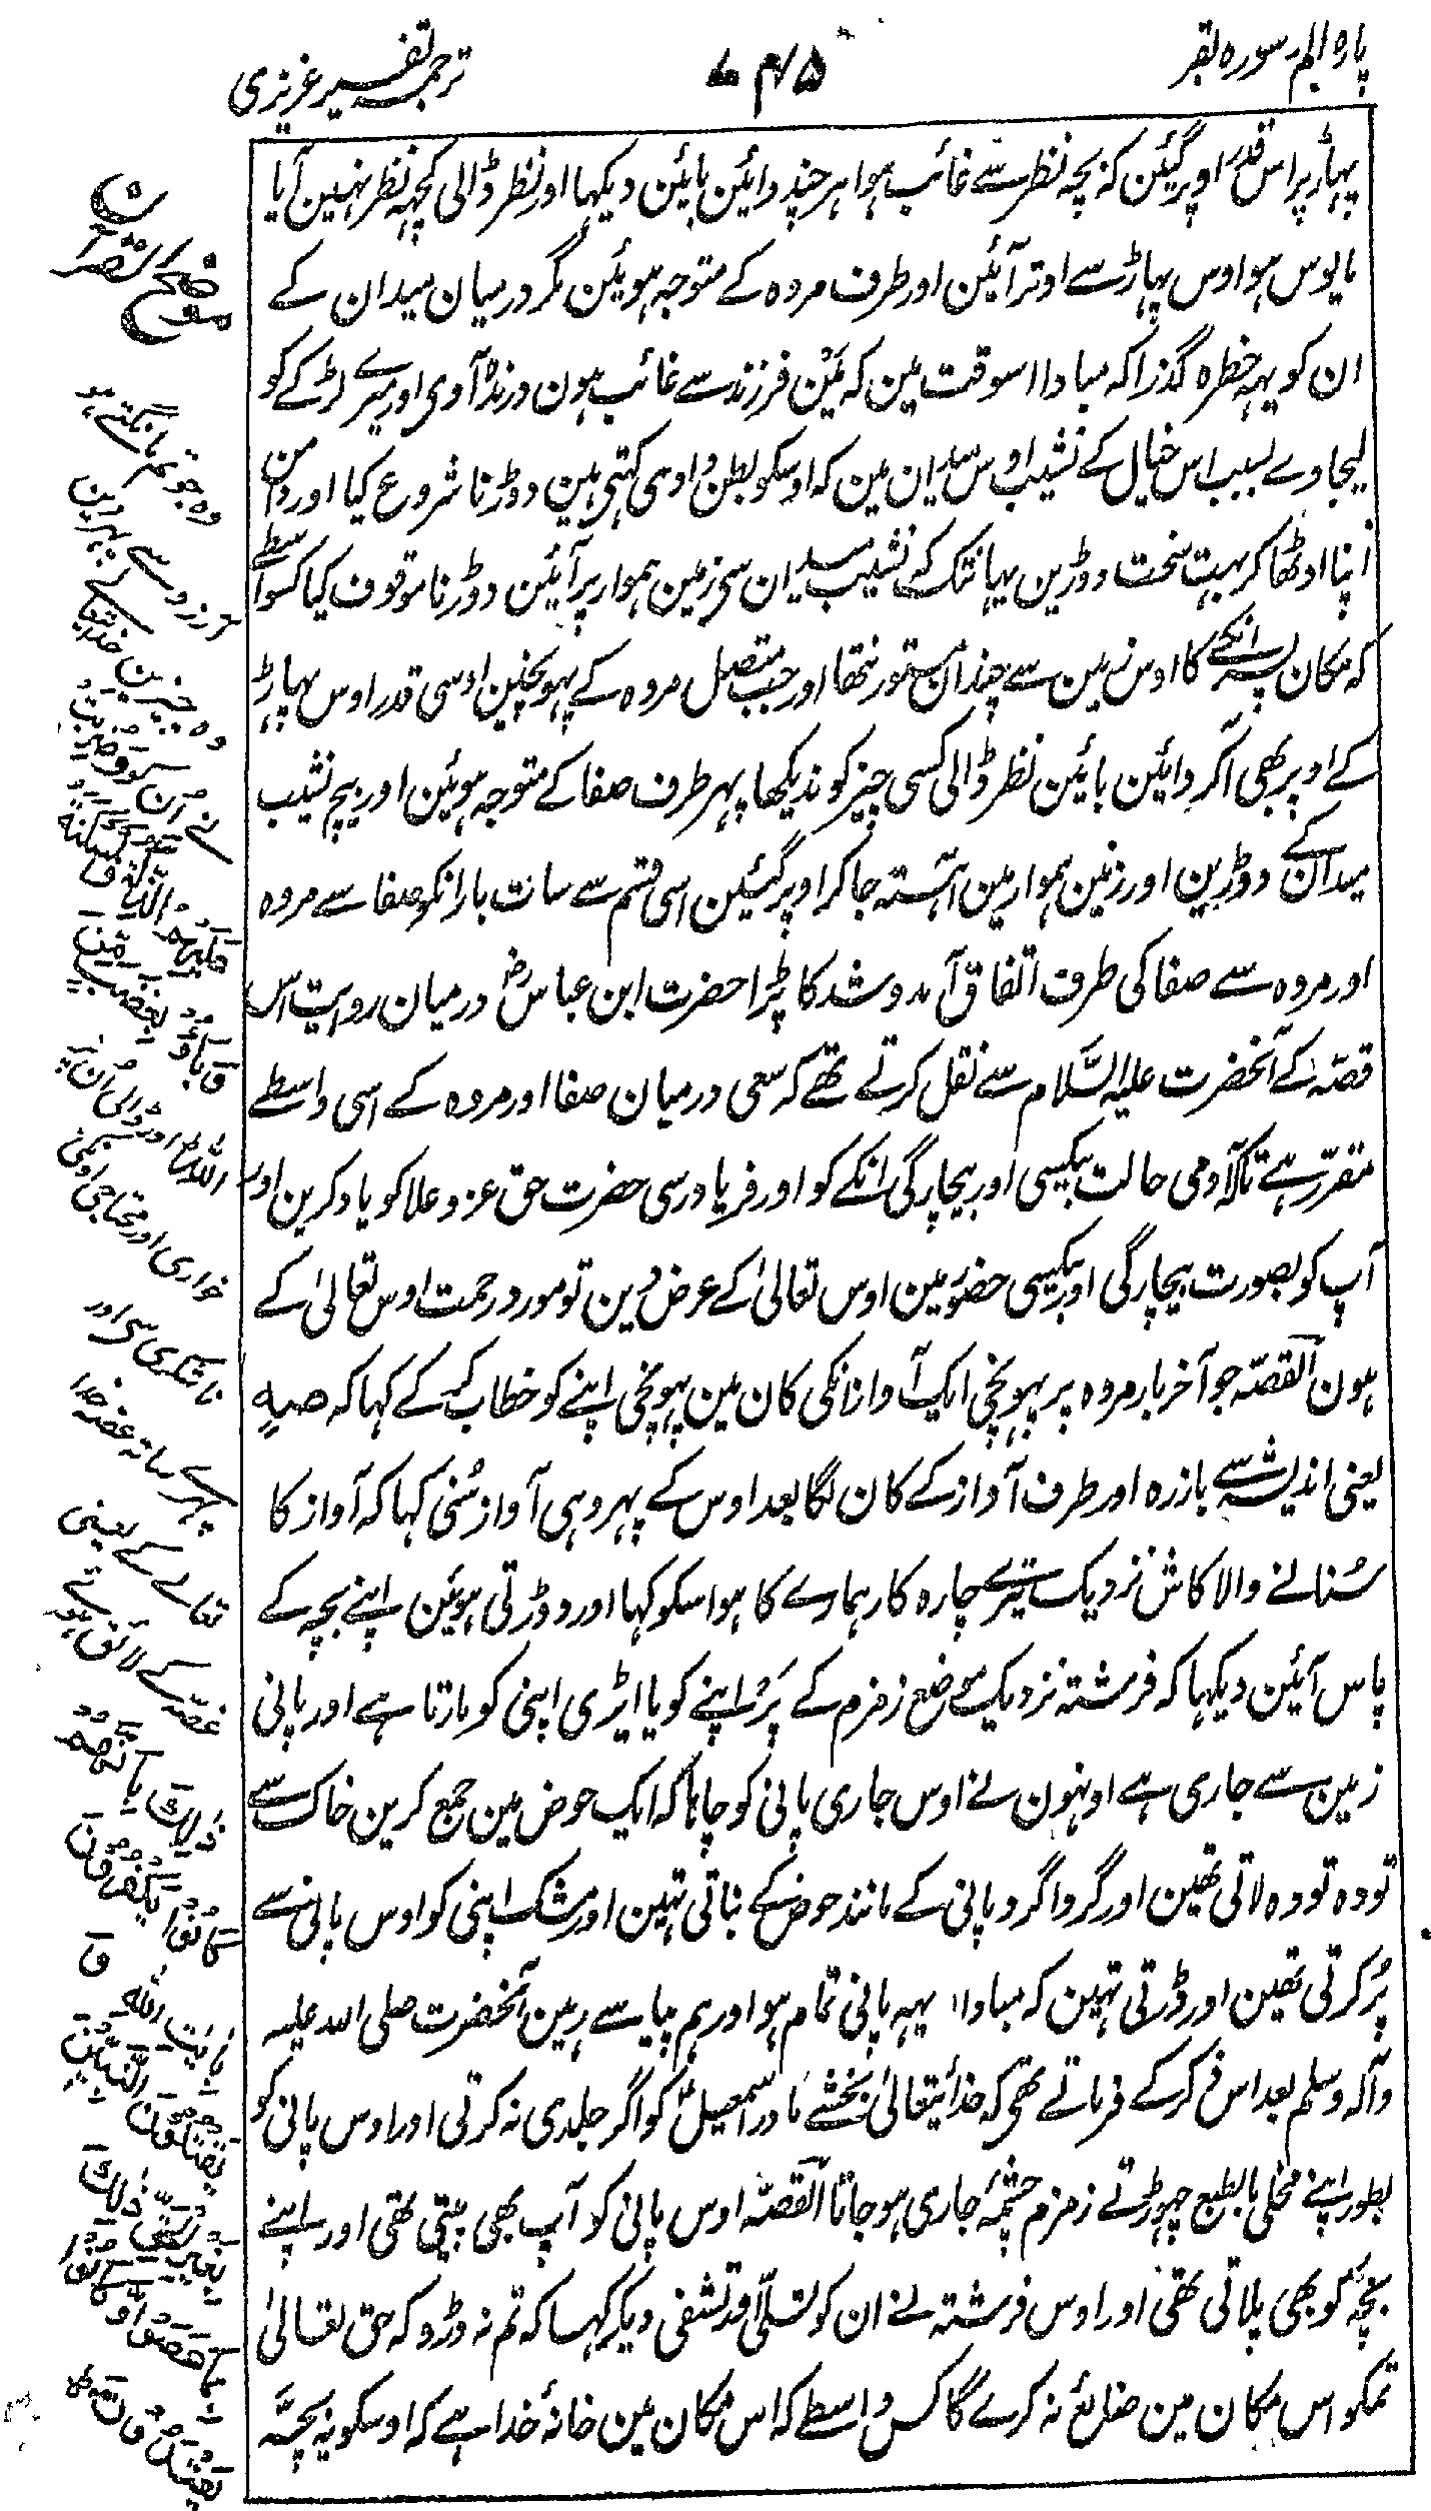 پارہ الم سورہ بقر
ترجمہ تفسیر عزیزی
پہاڑ پر اس قدر اوپر گئین کہ بچہ نظر سے غائب ہوا ہر چند دائین بائین دیکہا اور نظر ڈالی کچہہ نظر نہین آیا
مایوس ہو اوس پہاڑ سے اوتر آئین اور طرف مروہ کے متوجہ ہوئین مگر درمیان میدان کے
ان کو یہہ خطرہ گذرا کہ مبادا اسوقت مین کہ مَیْن فرزند سے غائب ہون درندہ آوی اور میرے لڑکے کو
لیجاوے بسبب اس خیال کے نشیب اوس میدان مین کہ اوسکو بطن وادی کہتی ہین دوڑنا شروع کیا اور دامن
اپنا اوٹھا کر بہت سخت دوڑین یہانتک کہ نشیب میدان سی زمین ہموار پر آئین دوڑنا موقوف کیا کسواسطے
کہ مکان پسر انکے کا اوس زمین سے چندان مستور نتھا اور جب متصل مروہ کے پہونچین اوسی قدر اوس پہاڑ
کے اوپر بھی آکر دائین بائین نظر ڈالی کسی چیز کو ندیکھا پہر طرف صفا کے متوجہ ہوئین اور بیچ نشیب
میدان کے دوڑین اور زمین ہموار مین آہستہ جا کر اوپر گئین اسی قسم سے سات بار انکو صفا سے مروہ
اور مروہ سے صفا کی طرف اتفاق آمد و شد کا پڑا حضرت ابن عباس رض درمیان روایت اس
قصّہ کے آنحضرت علیہ السَّلام سے نقل کرتے تھے کہ سعی درمیان صفا اور مروہ کے اسی واسطے
مقرّر ہے تا کہ آدمی حالت بیکسی اور بیچارگی انکے کو اور فریاد رسی حضرت حق عز و علا کو یاد کرین اور
آپ کو بصورت بیچارگی اور بیکسی حضور مین اوس تعالیٰ کے عرض دین تو مورد رحمت اوس تعالیٰ کے
ہون القصّہ جو آخر بار مروہ پر پہونچی ایک آواز انکی کان مین پہونچی اپنے کو خطاب کر کے کہا کہ صہٍ
یعنی اندیشہ سے بازرہ اور طرف آواز کے کان لگا بعد اوس کے پہر وہی آواز سُنی کہا کہ آواز کا
سُنانے والا کاش نزدیک تیرے چارہ کار ہمارے کا ہو اسکو کہا اور دوڑتی ہوئین اپنے بچہ کے
پاس آئین دیکہا کہ فرشتہ نزدیک موضع زمزم کے پَر اپنے کو یا ایڑی اپنی کو مارتا ہے اور پانی
زمین سے جاری ہے اونہون نے اوس جاری پانی کو چاہا کہ ایک حوض مین جمع کرین خاک سے
تودہ تودہ لاتی تھین اور گرداگرد پانی کے مانند حوض کے بناتی تہین اور مشک اپنی کو اوس پانی سے
پُر کرتی تھین اور ڈرتی تہین کہ مبادا یہہ پانی تمام ہو اور ہم پیاسے رہین آنحضرت صلی اللہ علیہ
وآلہ وسلم بعد اس ذکر کے فرماتے تھی کہ خدایتعالیٰ بخشے مادر اسمعیل کو اگر جلدی نہ کرتی اور اوس پانی کو
بطور اپنے مخلی بالطبع چہوڑتے زمزم چشمۂ جاری ہو جاتا القصّہ اوس پانی کو آپ بھی پیتی تھی اور اپنے
بچہ کو بھی پلاتی تھی اور اوس فرشتہ نے ان کو تسلّی اور تشفی دیکر کہا کہ تم نہ ڈرو کہ حق تعالیٰ
تمکو اس مکان مین ضائع نہ کرے گا کس واسطے کہ اس مکان مین خانۂ خدا ہے کہ اوسکو یہ بچّہ
موضح القرآن
وہ جو تم مانگتے ہو
وہ چیزین
وَضُرِبَتْ
عَلَيْهِمُ الذِّلَّةُ وَ الْمَسْكَنَةُ
وَبَآءُوْ بِغَضَبٍ مِّنَ
اللّٰهِ اور ڈالی اُن پر
خواری اور محتاجی اونکی
ناشکری سی اور
پہرے ساتہ غصہ خدا
تعالے کے یعنی
غصّہ کے لائق ہوئے
ذٰلِكَ بِاَنَّهُمْ
كَانُوْا يَكْفُرُوْنَ
بِاٰيٰتِ اللّٰهِ وَ
يَقْتُلُوْنَ النَّبِيّٖنَ
بِغَيْرِ الْحَقِّ ذٰلِكَ
بِمَا عَصَوْا وَّ كَانُوْا
يَعْتَدُوْنَ